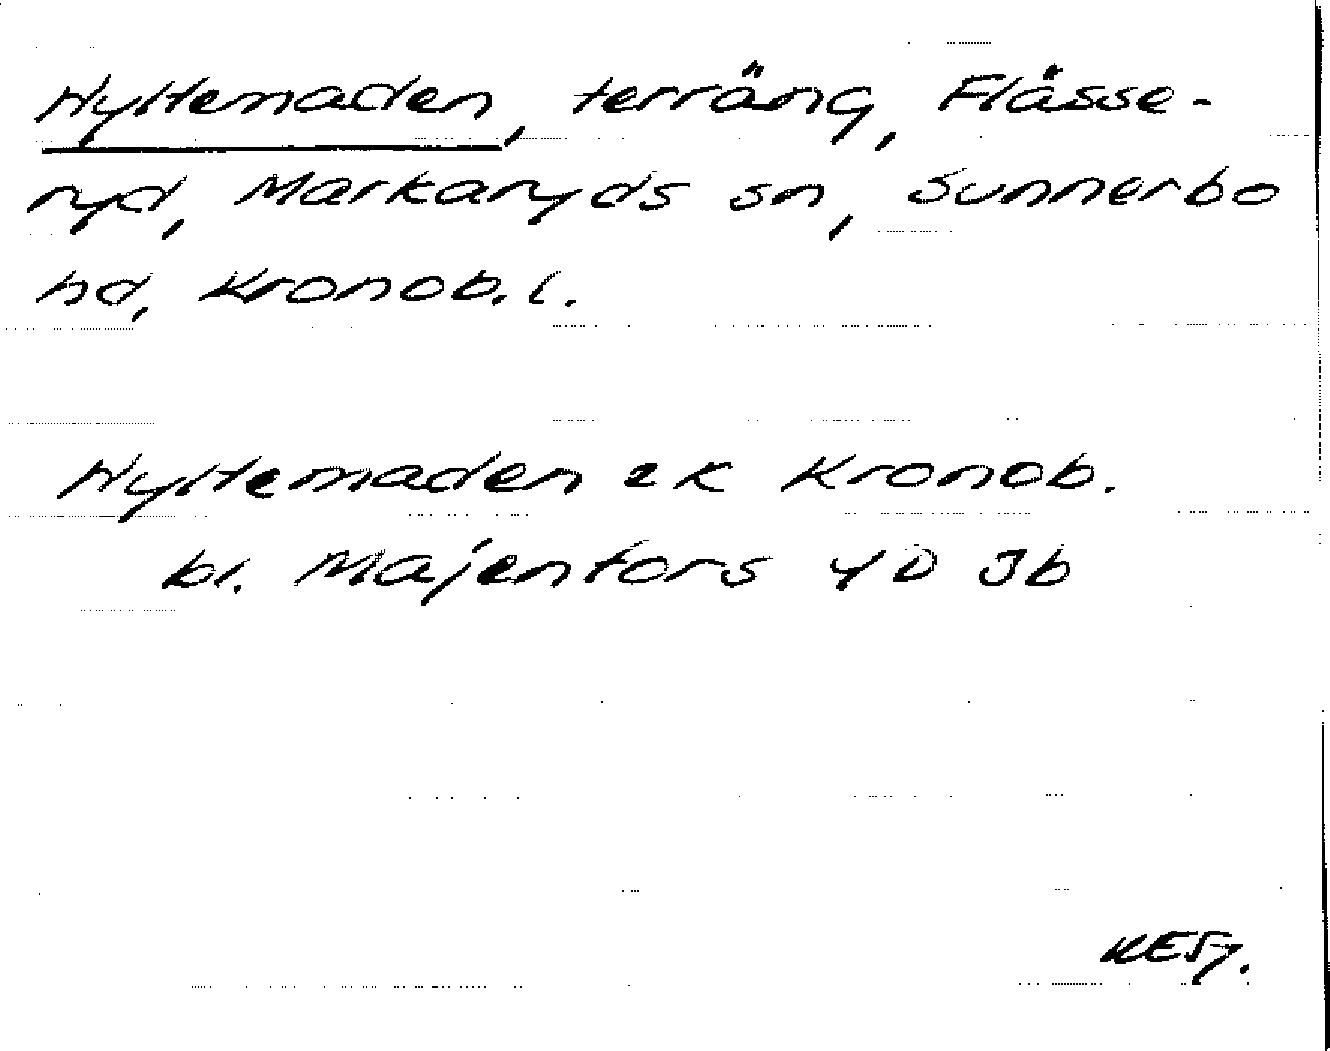 Hyltemaden, terräng, Flåsse-
ryd, Markaryds sn, Sunnerbo
hd, Kronob. l.
Hyltemaden ek Kronob.
bl. Majenfors 4D Jb